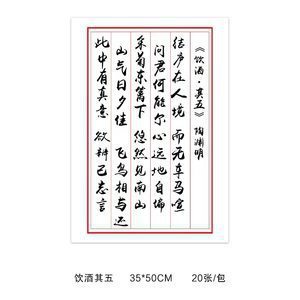 《饮酒·其五》 陶渊明
结庐在人境 而无车马喧
问君何能尔 心远地自偏
采菊东篱下 悠然见南山
山气日夕佳 飞鸟相与还
此中有真意 欲辨已忘言
饮酒其五 35*50CM 20张/包